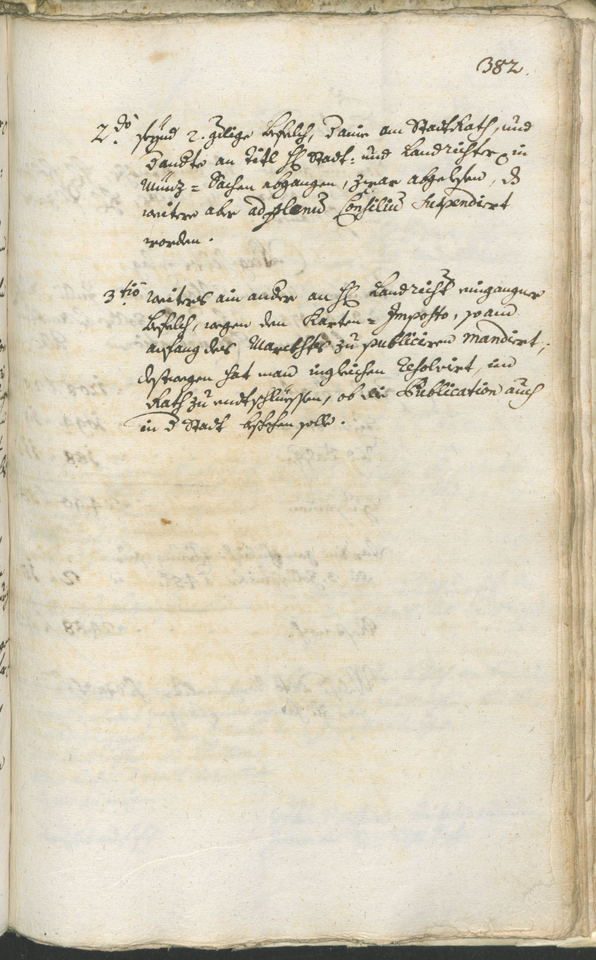 382.
2.do seynd 2. zilige befelch, dauon an Stadt Rath, und
an Titl H: Stadt- und Landrichter in
Münz-Sachen abgangen, zwar abgelesen, d
weitere aber ad plenū Consiliū Suspendiert
worden.
3.tiò weiters ain ander an H: Landricht: eingangner
befelch, wegen den Karten-Imposto, so am
anfang des Marckhts zu publiciren mandirt,
destwegen hat man ingleichen resolvirt, im
Rath zu entschlüessen, ob die Publication auch
in d Stadt beschehen solle.